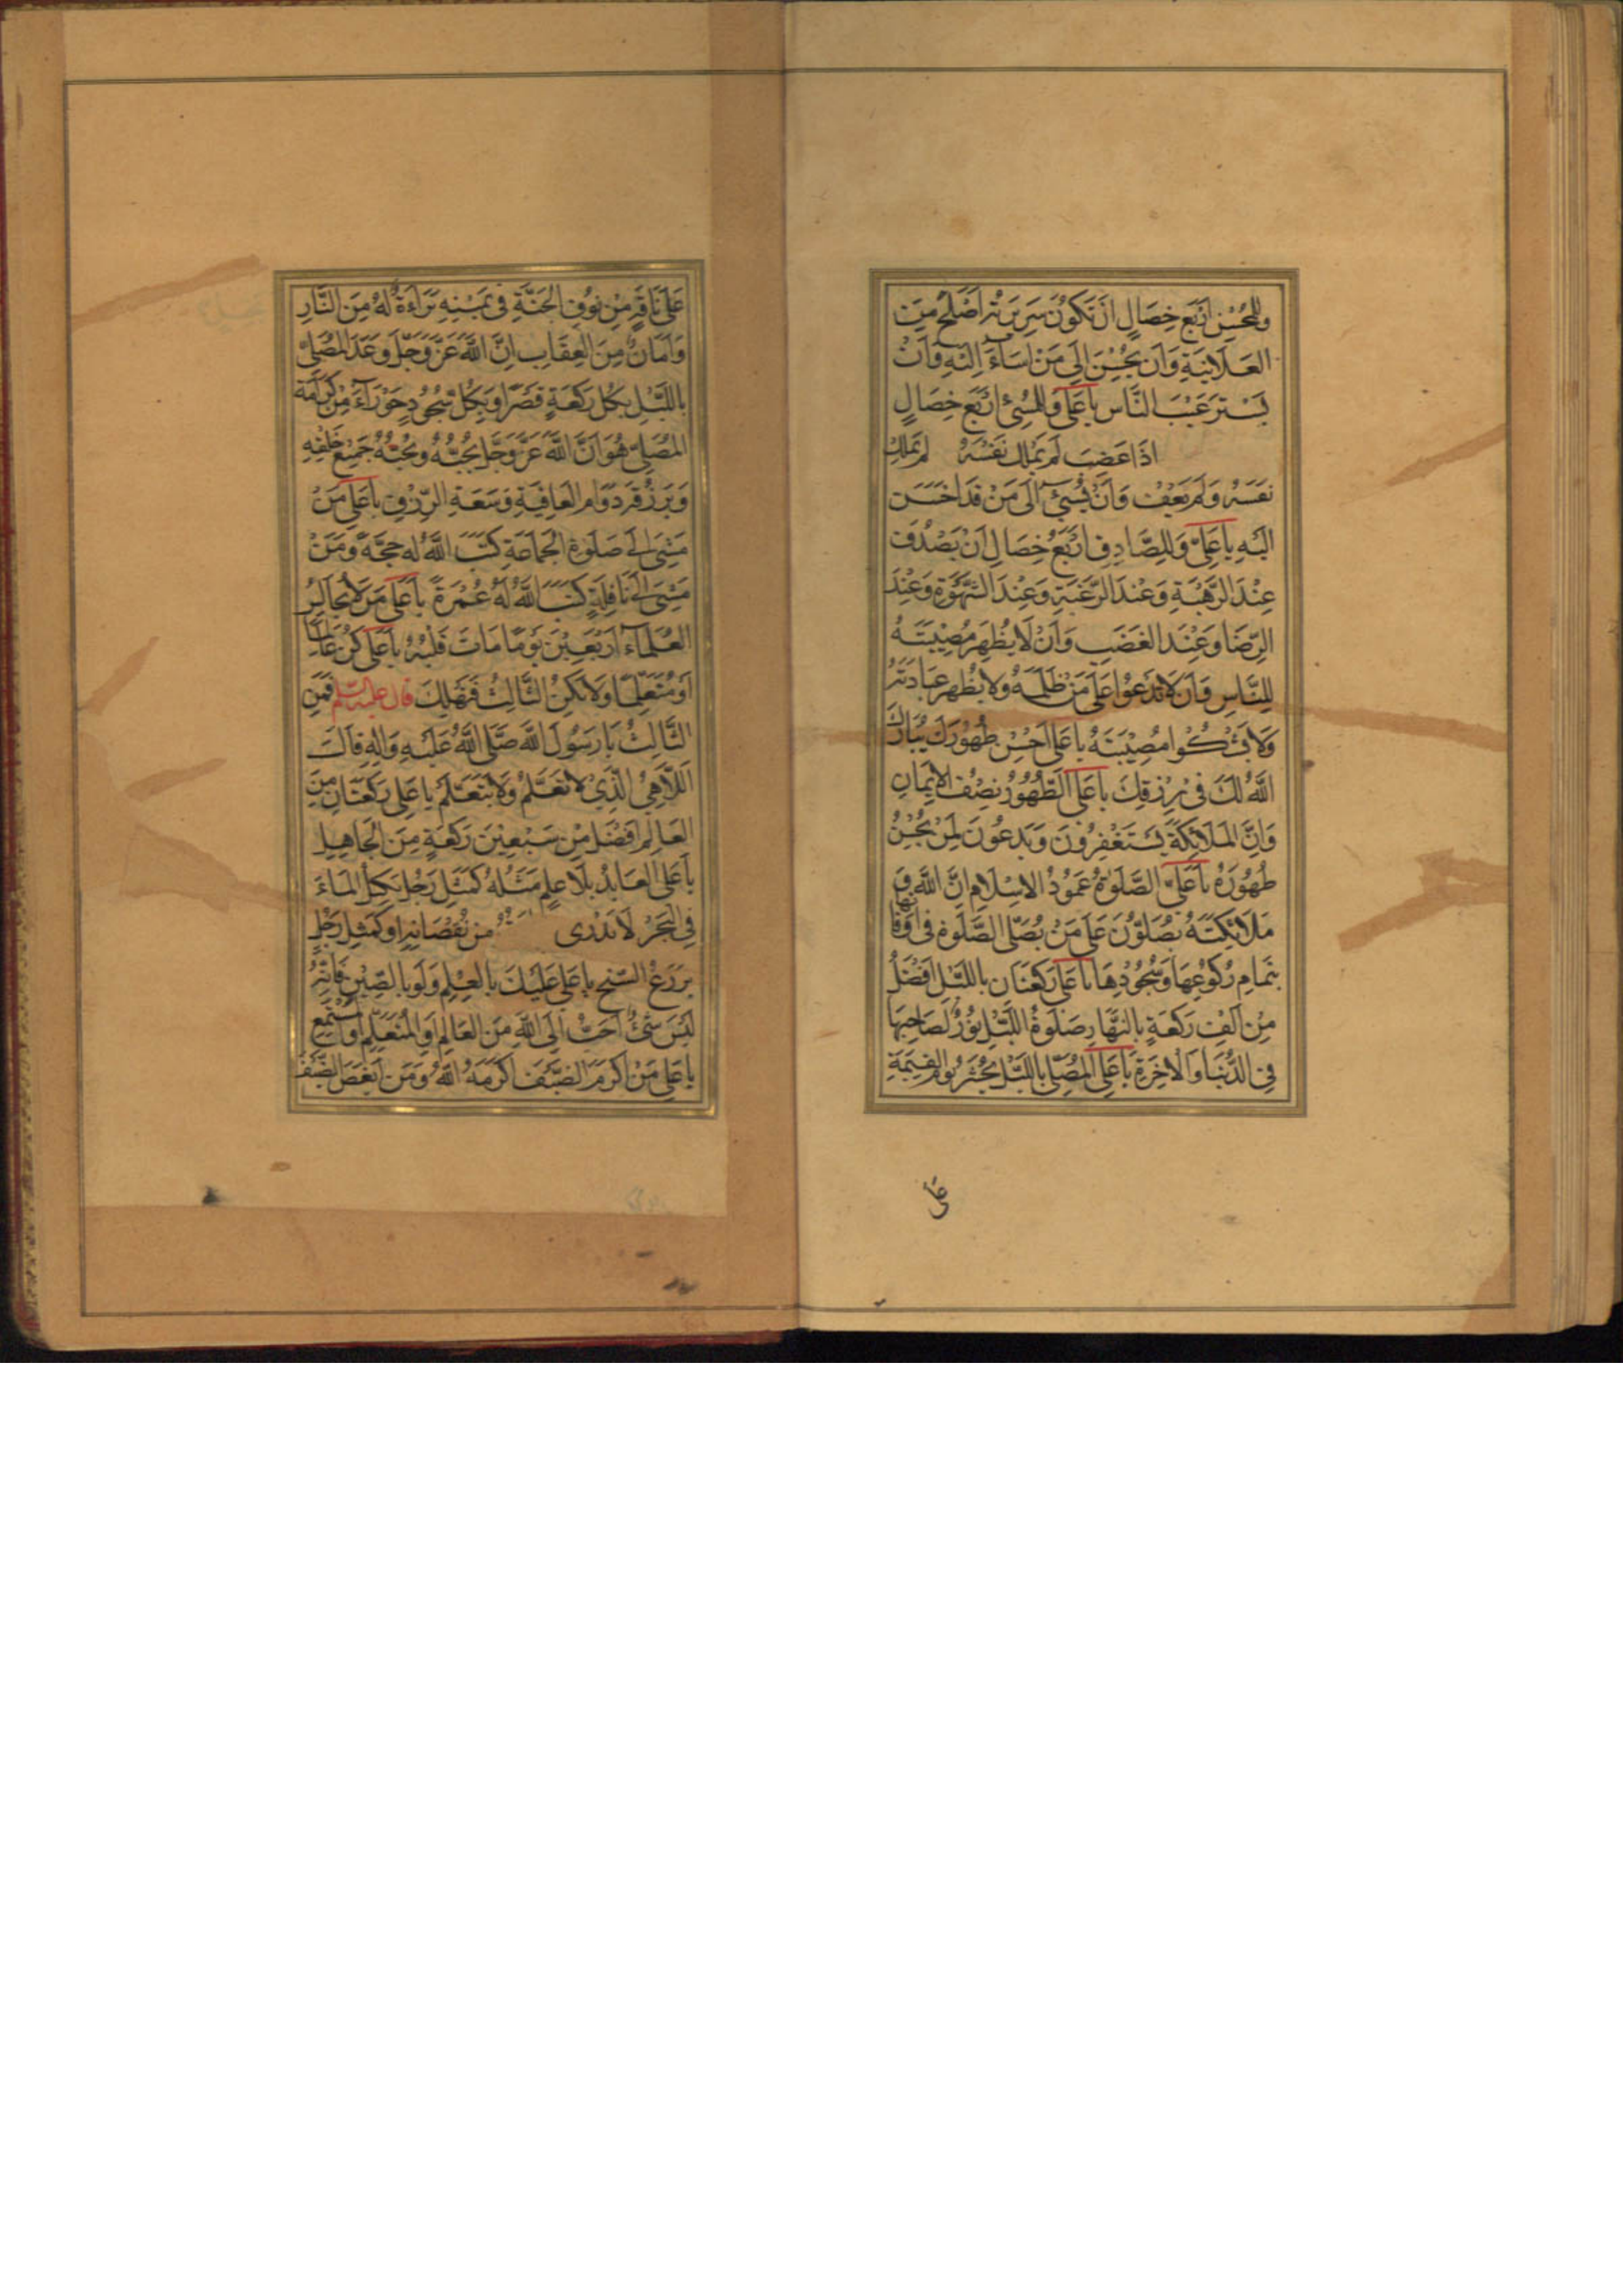 وَلِلمُحْسِنِ اَرْبَع خِصَالٍ اَنْ تَكُونَ سَرِيرَتُهُ اَصْلَحُ مِنَ
العَلَانِيَةِ وَاَنْ يُحْسِنَ اِلَى مَنْ اَسَاءَ اِلَيْهِ وَاَنْ
يَسْتُرَ عَيْبَ النَّاسِ يَا عَلِى وَلِلمُسِئِ اَرْبَعْ خِصَالٍ
اِذَا غَضِبَ لَمْ يَمْلِكْ نَفْسَهُ لَمْ يَمْلِكْ
نَفْسَهُ وَلَمْ يَعِفْ وَاَنْ يُسِئَ اِلَى مَنْ قَدْ اَحْسَنَ
اِلَيْهِ يَا عَلِىُّ وَلِلصَّادِقِ اَرْبَعُ خِصَالٍ اَنْ يَصْدُقَ
عِنْدَ الرَّهْبَةِ وَعِنْدَ الرَّغْبَةِ وَعِنْدَ الشَّهْوَةِ وَعِنْدَ
الرِّضَا وَعِنْدَ الغَضَبِ وَاَنْ لَا يُظْهِرَ مُصِيْبَتَهُ
لِلنَّاسِ وَاَنْ لَا يَدْعُوا عَلَى مَنْ ظَلَمَهُ وَلَا يُظْهِرَ عِبَادَتَهُ
وَلَا يَشْكُوا مُصِيْبَتَهُ يَا عَلِى اَحْسِنْ طَهُورَكَ يُبَارِكَ
اللَّهُ لَكَ فِى رِزْقِكَ يَا عَلِى الطَّهُوُرُ نِصْفُ الاِيْمَانِ
وَاِنَّ المَلَائِكَةَ يَسْتَغْفِرُونَ وَيَدْعُونَ لِمَنْ يُحْسِنُ
طُهُوْرَهُ يَا عَلِىّ الصَّلَوةُ عَمُودُ الاِسْلَامِ اِنَّ اللَّهَ وَ
مَلَائِكَتَهُ يُصَلُّوْنَ عَلَى مَنْ يُصَلِّى الصَّلَوة فِى اَوْقَاتِهَا
بِتَمَامِ رُكُوعِهَا وَسُجُوُدِهَا يَا عَلِى رَكْعَتَانِ بِاللَّيْلِ اَفْضَلُ
مِنْ اَلفِ رَكْعَةٍ بِالنَّهَارِ صَلَوةُ اللَّيْلِ نُوْرٌ لِصَاحِبِهَا
فِى الدُّنْيَا وَالاَخِرَةِ يَا عَلِى المُصَلِّى بِاللَّيْلِ يُحْشَرُ يَوْمَ القِيمَةِ
عَلى
عَلَى نَاقَةٍ مِنْ نُوْقِ الجَنَّةِ فِى يَمِيْنِهِ بَرَاءَةٌ لَهُ مِنَ النَّارِ
وَاَمَانٌ مِنَ العِقَابِ اِنَّ اللَّهَ عَزَّ وَجَلَّ وَعَدَ المُصَلِّى
بِاللَّيْلِ بِكُلِّ رَكْعَةٍ قَصْرًا وَبِكُلِّ سُجُوُدٍ حَوْرَاءَ مِنْ كَرَامَة
المُصَلِّى هُوَ اَنَّ اللَّهَ عَزَّ وَجَلَّ يُحِبُّهُ وَيُحِبُّهُ جَمِيْعُ خَلْقِهِ
وَيَرْزُقهُ دَوَام العَافِيَةِ وَسَعَةِ الرِّزْقِ يَا عَلِى مَنْ
مَشَى اِلَى صَلَوةِ الجَمَاعَةِ كَتَبَ اللَّهُ لَهُ حَجَّةً وَمَنْ
مَشَى اِلَى نَافِلَةٍ كَتَبَ اللَّهُ لَهُ عُمْرَةً يَا عَلِى مَنْ لَا يُجَالِسُ
العُلَمَاءَ اَرْبَعِيْنَ يَوْمًا مَاتَ قَلْبُهُ يَا عَلِى كُنْ عَالِمًا
اَوْ مُتَعَلِّمًا وَلَا تَكُنِ الثَّالِثُ فَتَهْلِكَ قال عليه السّلم فَمَنِ
الثَّالِثُ يَا رَسُولَ اللَّهِ صَلَّى اللَّهُ عَلَيْهِ وَالِهِ قَالَ
اللَّاهِىْ الَّذِىْ لَا يَعْلَمُ وَلَا يَتَعَلَّمُ يَا عَلِى رَكْعَتَانِ مِنَ
العَالِم اَفْضَل مِنْ سَبْعِيْنَ رَكْعَةٍ مِنَ الجَاهِلِ
يَا عَلِى العَابِدُ بِلَا عِلمٍ مَثَلُهُ كَمَثَلِ رَجُلٍ يَكِيلُ المَاءَ
فِى البَحْرِ لَا يَدْرِى مِنْ نُقْصَانِهِ اَوْ كَمَثَلِ رَجُلٍ
يَزْرَعْ السَّبَخ يَا عَلِى عَلَيْكَ بِالعِلْمِ وَلَو بِالصِّيْنِ فَاِنَّهُ
لَيْسَ شَىْءٌ اَحَبُّ اِلَى اللَّهِ مِنَ العَالِمْ وَالمُتَعَلِّمِ وَالمُسْتَمِعِ
يَا عَلِى مَنْ اَكْرَمَ الضَّيْفَ اَكْرَمَهُ اللَّهُ وَمَنْ اَبْغَضَ الضَّيْفَ